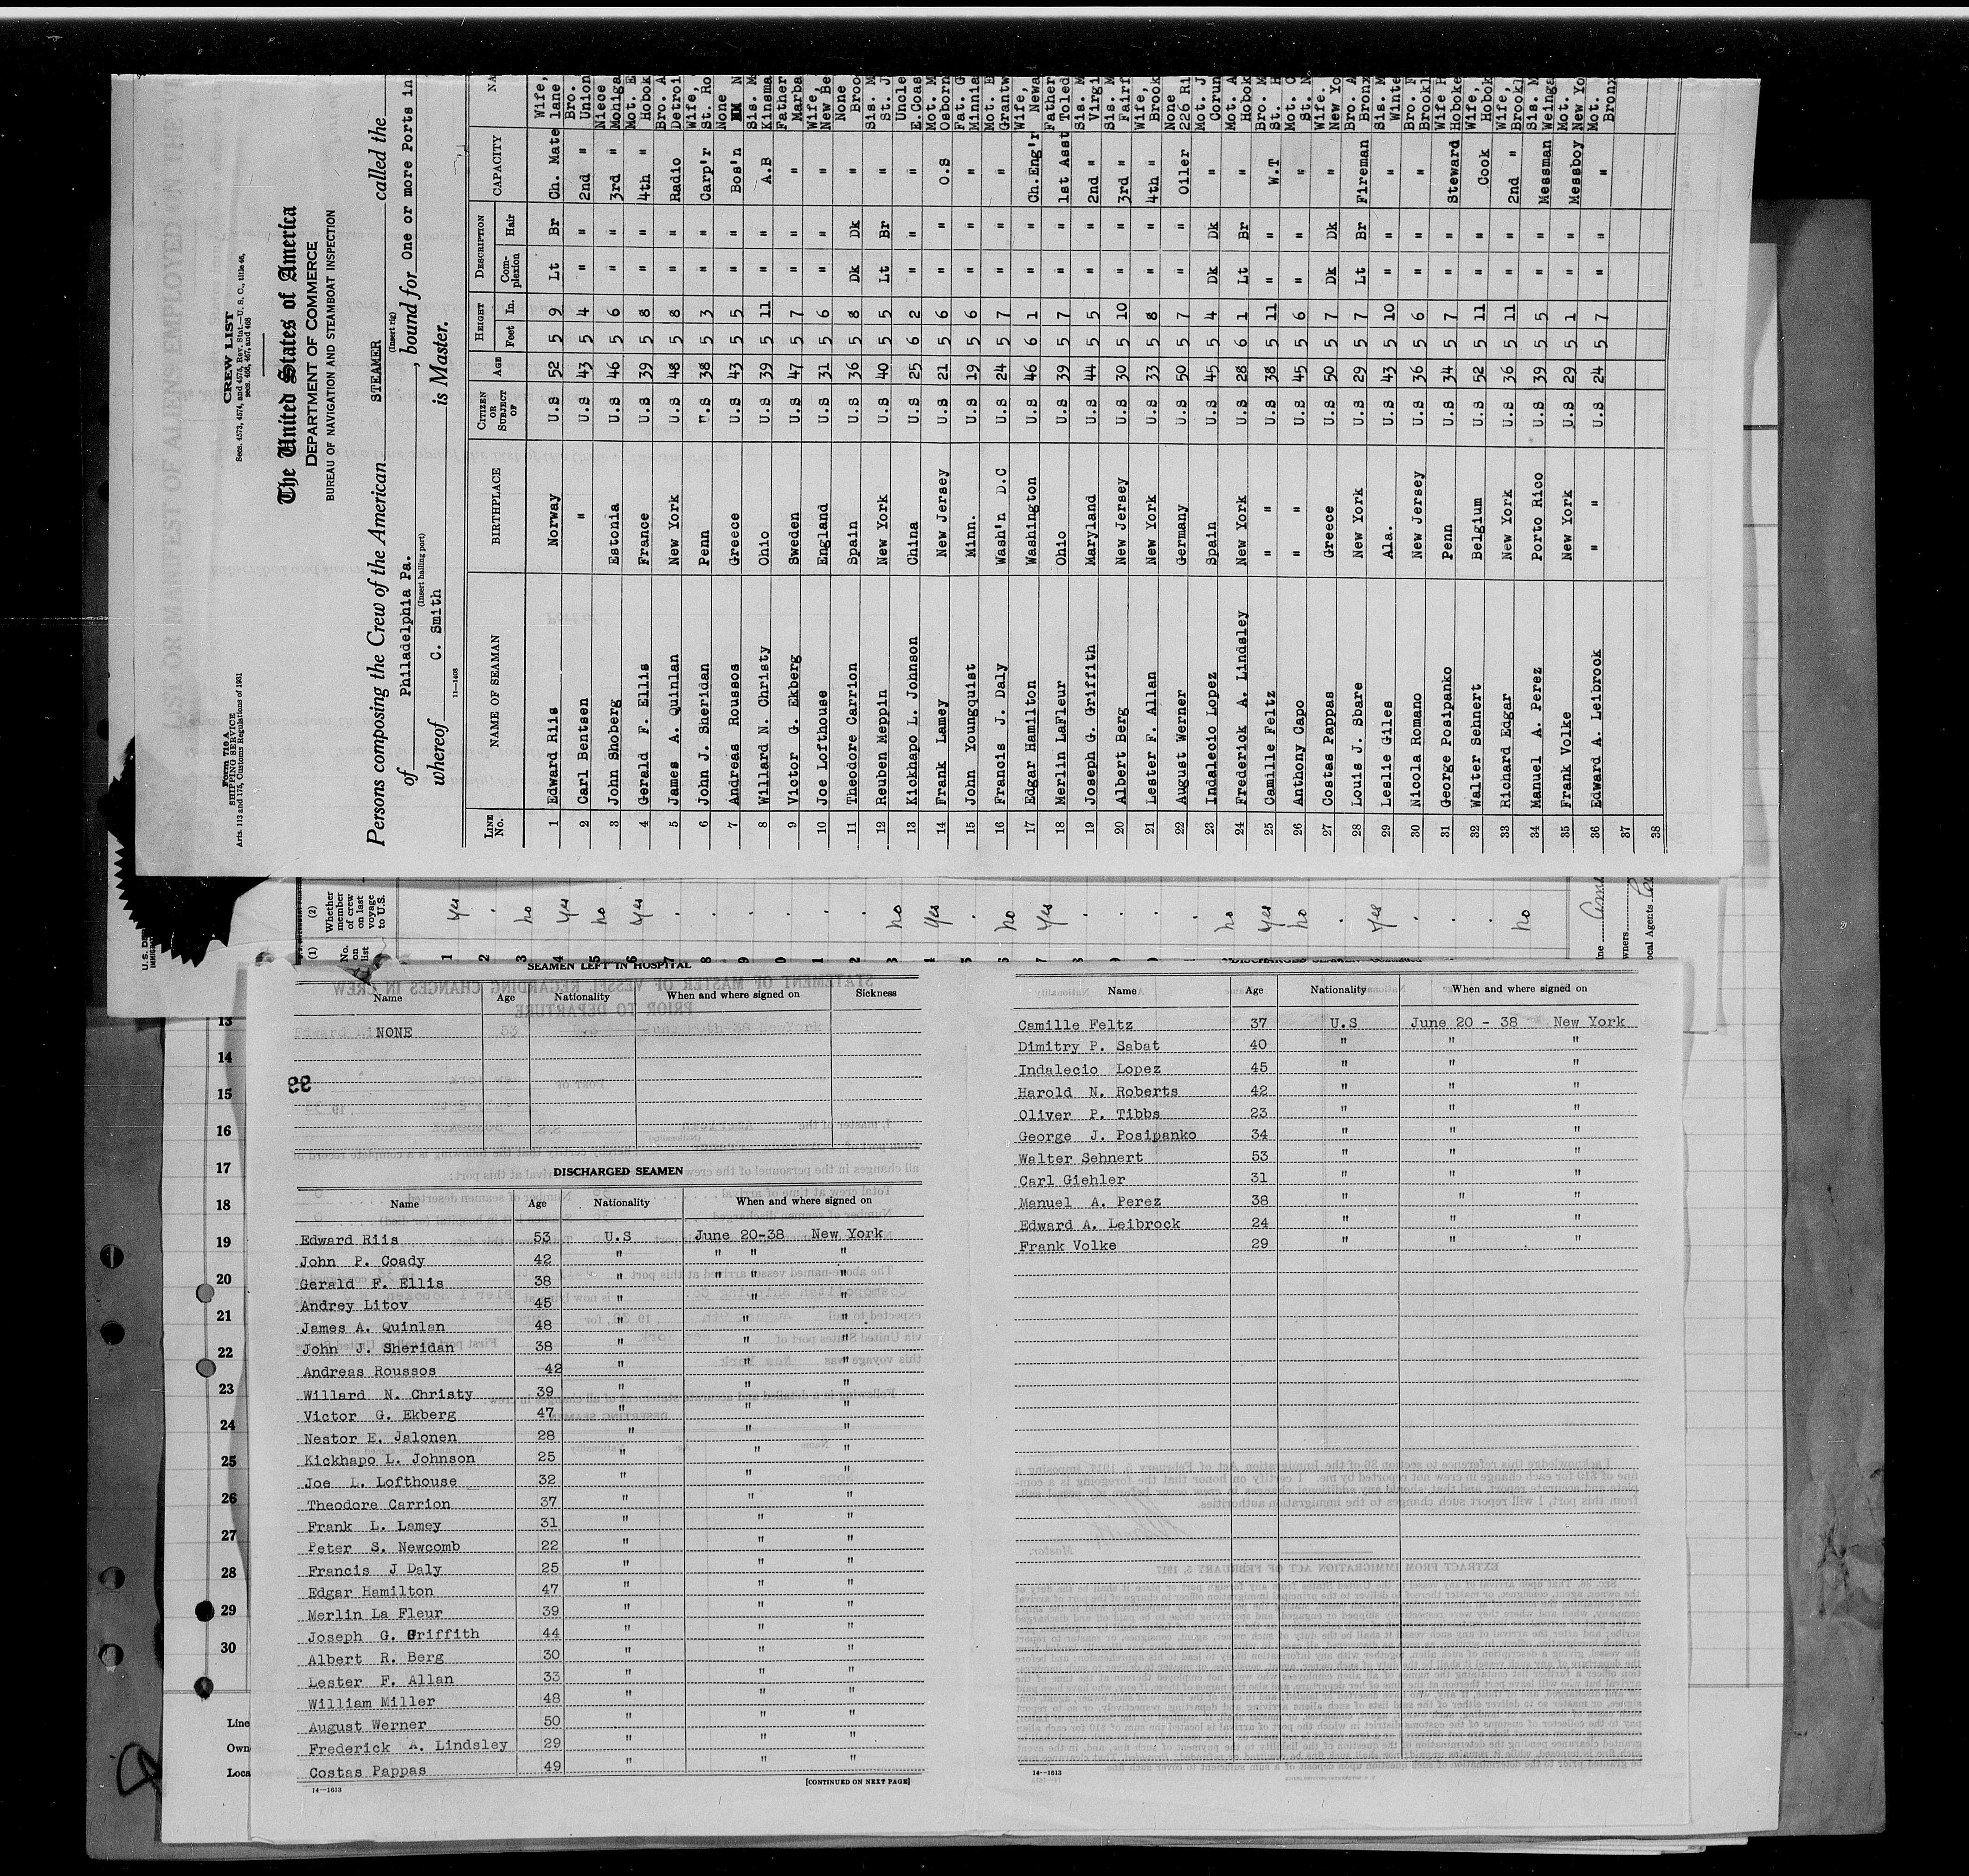 Form 710 A
SHIPPING SERVICE
Arts. 113 and 175, Customs Regulations of 1931
CREW LIST
Secs. 4573, 4574, and 4575, Rev. Stat.—U. S. C., title 46,
secs. 466, 467, and 468
The United States of America
DEPARTMENT OF COMMERCE
BUREAU OF NAVIGATION AND STEAMBOAT INSPECTION
Persons composing the Crew of the American STEAMER called the
(Insert rig)
of Philadelphia Pa. , bound for One or more Ports in
(Insert hailing port)
whereof C. Smith is Master.
11—1408
LINE No. NAME OF SEAMAN BIRTHPLACE CITIZEN OR SUBJECT OF AGE HEIGHT DESCRIPTION CAPACITY NA
Feet In. Complexion Hair
1 Edward Riis Norway U.S 52 5 9 Lt Br Ch. Mate Wife, lane
2 Carl Bentsen " U.S 43 5 4 " " 2nd " Bro. Union
3 John Shoberg Estonia U.S 46 5 6 " " 3rd " Niece Moniga
4 Gerald F. Ellis France U.S 39 5 8 " " 4th " Mot. E Hobok
5 James A. Quinlan New York U.S 48 5 8 " " Radio Bro. A Detroi
6 John J. Sheridan Penn U.S 38 5 3 " " Carp'r Wife, St. Ro
7 Andreas Roussos Greece U.S 43 5 5 " " Bos'n None N
8 Willard N. Christy Ohio U.S 39 5 11 " " A.B Sis. M Kinsma
9 Victor G. Ekberg Sweden U.S 47 5 7 " " " Father Marba
10 Joe Lofthouse England U.S 31 5 6 " " " Wife, New Be
11 Theodore Carrion Spain U.S 36 5 8 Dk Dk " None Broo
12 Reuben Meppin New York U.S 40 5 5 Lt Br " Sis. M St. J
13 Kickhapo L. Johnson China U.S 25 6 2 " " " Uncle E.Coas
14 Frank Lamey New Jersey U.S 21 5 6 " " O.S Mot. M Osborn
15 John Youngquist Minn. U.S 19 5 6 " " " Fat. G Minnia
16 Francis J. Daly Wash'n D.C U.S 24 5 7 " " " Mot. E Grantw
17 Edgar Hamilton Washington U.S 46 6 1 " " Ch.Eng'r Wife, Newa
18 Merlin LaFleur Ohio U.S 39 5 7 " " 1st Asst Father Toled
19 Joseph G. Griffith Maryland U.S 44 5 5 " " 2nd " Sis. M Virgi
20 Albert Berg New Jersey U.S 30 5 10 " " 3rd " Sis. M Fairf
21 Lester F. Allan New York U.S 33 5 8 " " 4th " Wife, Brook
22 August Werner Germany U.S 50 5 7 " " Oiler None 226 Ri
23 Indalecio Lopez Spain U.S 45 5 4 Dk Dk " Mot. J Corun
24 Frederick A. Lindsley New York U.S 28 6 1 Lt Br " Mot. A Hobok
25 Camille Feltz " " U.S 38 5 11 " " W.T Bro. M St. H
26 Anthony Capo " " U.S 45 5 6 " " " Mot. C St. N
27 Costas Pappas Greece U.S 50 5 7 Dk Dk " Wife. New Yo
28 Louis J. Sbare New York U.S 29 5 7 Lt Br Fireman Bro. A Bronx
29 Leslie Giles Ala. U.S 43 5 10 " " " Sis. M Winte
30 Nicola Romano New Jersey U.S 36 5 6 " " " Bro. F Brookl
31 George Posipanko Penn U.S 34 5 7 " " Steward Wife H Hoboke
32 Walter Sehnert Belgium U.S 52 5 11 " " Cook Wife, Hobok
33 Richard Edgar New York U.S 36 5 11 " " 2nd " Wife, Brookl
34 Manuel A. Perez Porto Rico U.S 39 5 5 " " Messman Sis. M Weinga
35 Frank Volke New York U.S 29 5 1 " " Messboy Mot. New Yo
36 Edward A. Leibrock " " U.S 24 5 7 " " " Mot. Bronx
37
38
(1) (2)
No. on list
Whether member of crew on last voyage to U.S.
1 yes
2 .
3 no
4 yes
5 no
6 yes
7 .
8 .
9 .
0 .
1 .
2 .
3 no
4 yes
5
6 no
7 yes
8 .
9 .
0 .
no
yes
no
yes
no
SEAMEN LEFT IN HOSPITAL
Name Age Nationality When and where signed on Sickness
NONE
DISCHARGED SEAMEN
Name Age Nationality When and where signed on
Edward Riis 53 U.S June 20-38 New York
John P. Coady 42 " " " "
Gerald F. Ellis 38 " " " "
Andrey Litov 45 " " "
James A. Quinlan 48 " " "
John J. Sheridan 38 " " "
Andreas Roussos 42 " " "
Willard N. Christy 39 " " "
Victor G. Ekberg 47 " " "
Nestor E. Jalonen 28 " " "
Kickhapo L. Johnson 25 " " "
Joe L. Lofthouse 32 " " "
Theodore Carrion 37 " " "
Frank L. Lamey 31 " " "
Peter S. Newcomb 22 " " "
Francis J Daly 25 " " "
Edgar Hamilton 47 " " "
Merlin La Fleur 39 " " "
Joseph G. Griffith 44 " " "
Albert R. Berg 30 " " "
Lester F. Allan 33 " " "
William Miller 48 " " "
August Werner 50 " " "
Frederick A. Lindsley 29 " " "
Costas Pappas 49 " " "
14—1613
[CONTINUED ON NEXT PAGE]
Name Age Nationality When and where signed on
Camille Feltz 37 U.S June 20 - 38 New York
Dimitry P. Sabat 40 " " "
Indalecio Lopez 45 " " "
Harold N. Roberts 42 " " "
Oliver P. Tibbs 23 " " "
George J. Posipanko 34 " " "
Walter Sehnert 53 " " "
Carl Giehler 31 " " "
Manuel A. Perez 38 " " "
Edward A. Leibrock 24 " " "
Frank Volke 29 " " "
14—1613
13
14
15
16
17
18
19
20
21
22
23
24
25
26
27
28
29
30
Line
Own
Loca